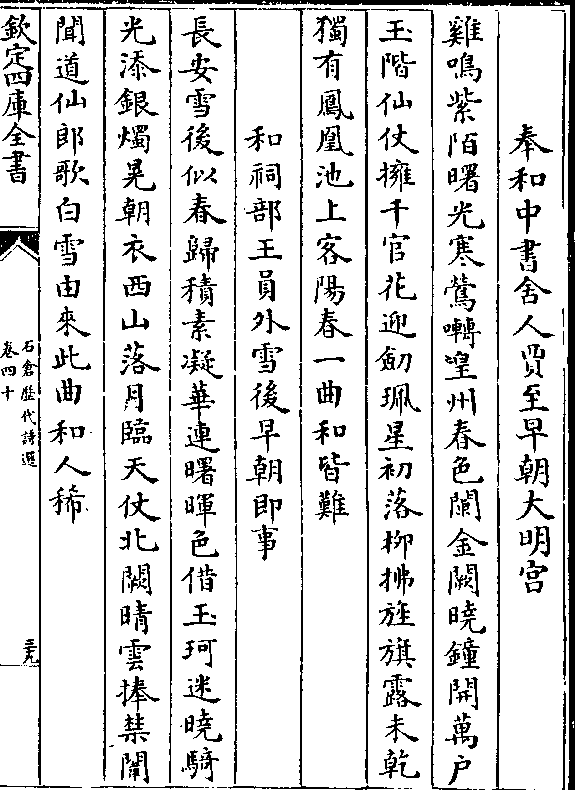 奉和中書舍人賈至早朝大明宮
雞鳴紫陌曙光寒鶯囀皇州春色闌金闕曉鐘開萬戶
玉階仙仗擁千官花迎劒珮星初落柳拂旌旗露未乾
獨有鳳凰池上客陽春一曲和皆難
和祠部王員外雪後早朝即事
長安雪後似春歸積素凝華連曙暉色借玉珂迷曉騎
光添銀燭晃朝衣西山落月臨天仗北闕晴雲捧禁闈
聞道仙郎歌白雪由來此曲和人稀
欽定四庫全書
石倉歷代詩選
卷四十
三九